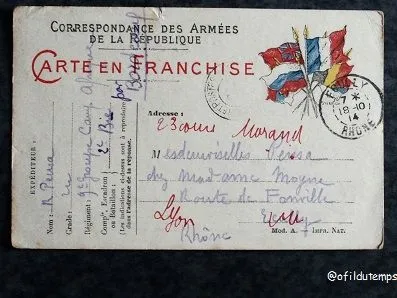 CORRESPONDANCE DES ARMÉES
DE LA RÉPUBLIQUE
CARTE EN FRANCHISE
ÉCULLY
7 *
18-10
14
RHÔNE
EXPÉDITEUR :
Nom :
Grade :
Régiment : 9e Groupe Camp
Compie, Escadron
ou Batterie :
2e Bie par
(Les indications ci-dessus sont à reproduire
dans l'adresse de la réponse.
Adresse :
23 cours Morand
Mesdemoiselles
chez Madame Moyne
Route de
Lyon
Rhône
Mod. A. Impr. Nat.
@ofildutemps